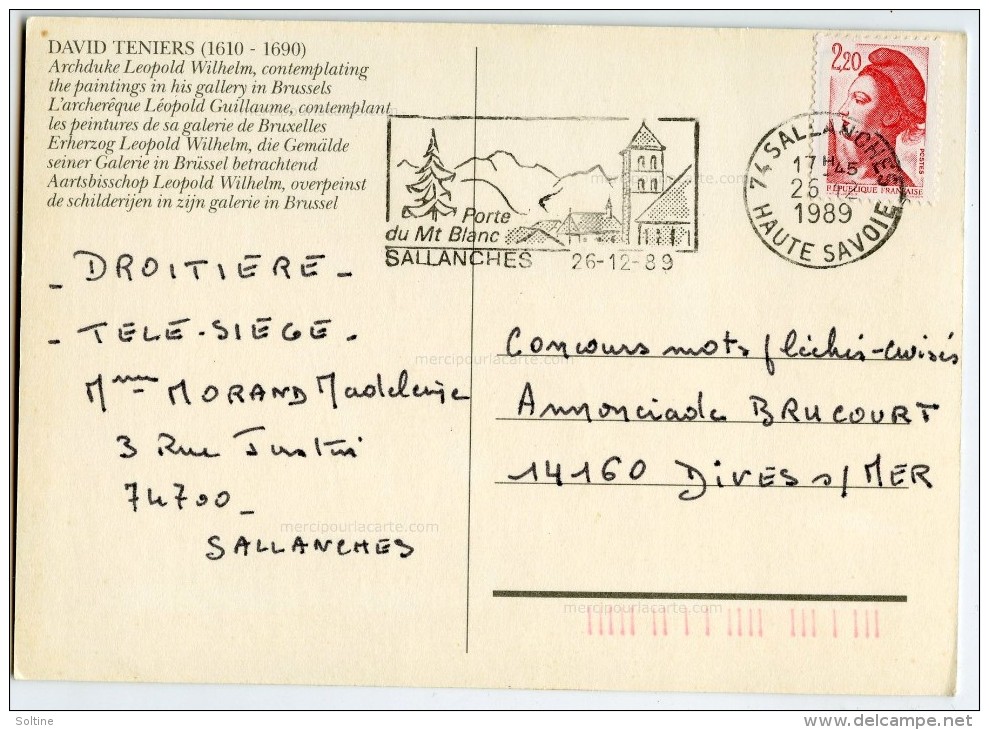 DAVID TENIERS (1610 - 1690)
Archduke Leopold Wilhelm, contemplating
the paintings in his gallery in Brussels
L'archerêque Léopold Guillaume, contemplant
les peintures de sa galerie de Bruxelles
Erherzog Leopold Wilhelm, die Gemälde
seiner Galerie in Brüssel betrachtend
Aartsbisschop Leopold Wilhelm, overpeinst
de schilderijen in zijn galerie in Brussel
Porte
du Mt Blanc
SALLANCHES 26-12-89
74 SALLANCHES
17H45
26
1989
HAUTE SAVOIE
2,20
POSTES
REPUBLIQUE FRANÇAISE
- DROITIERE -
- TELE-SIEGE -
Mme MORAND Madeleine
3 Rue Justin
74700_
SALLANCHES
Concours mots fléchés-croisés
Annonciade BRUCOURT
14160 DIVES s/ MER
mercipourlacarte.com
mercipourlacarte.com
mercipourlacarte.com
mercipourlacarte.com
mercipourlacarte.com
Soltine
www.delcampe.net